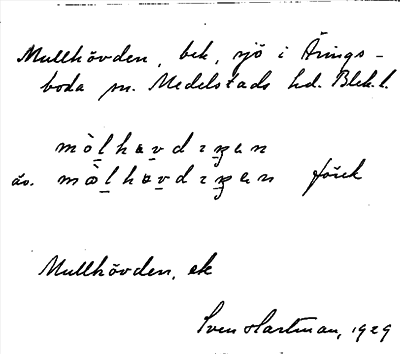 Mullhövden, bek, sjö i Årings-
boda sn. Medelstads hd. Blek.l.
mòlhavdıȵen
äv. mòlhavdıȵen förek
Mullhövden, ek
Sven Hartman, 1929